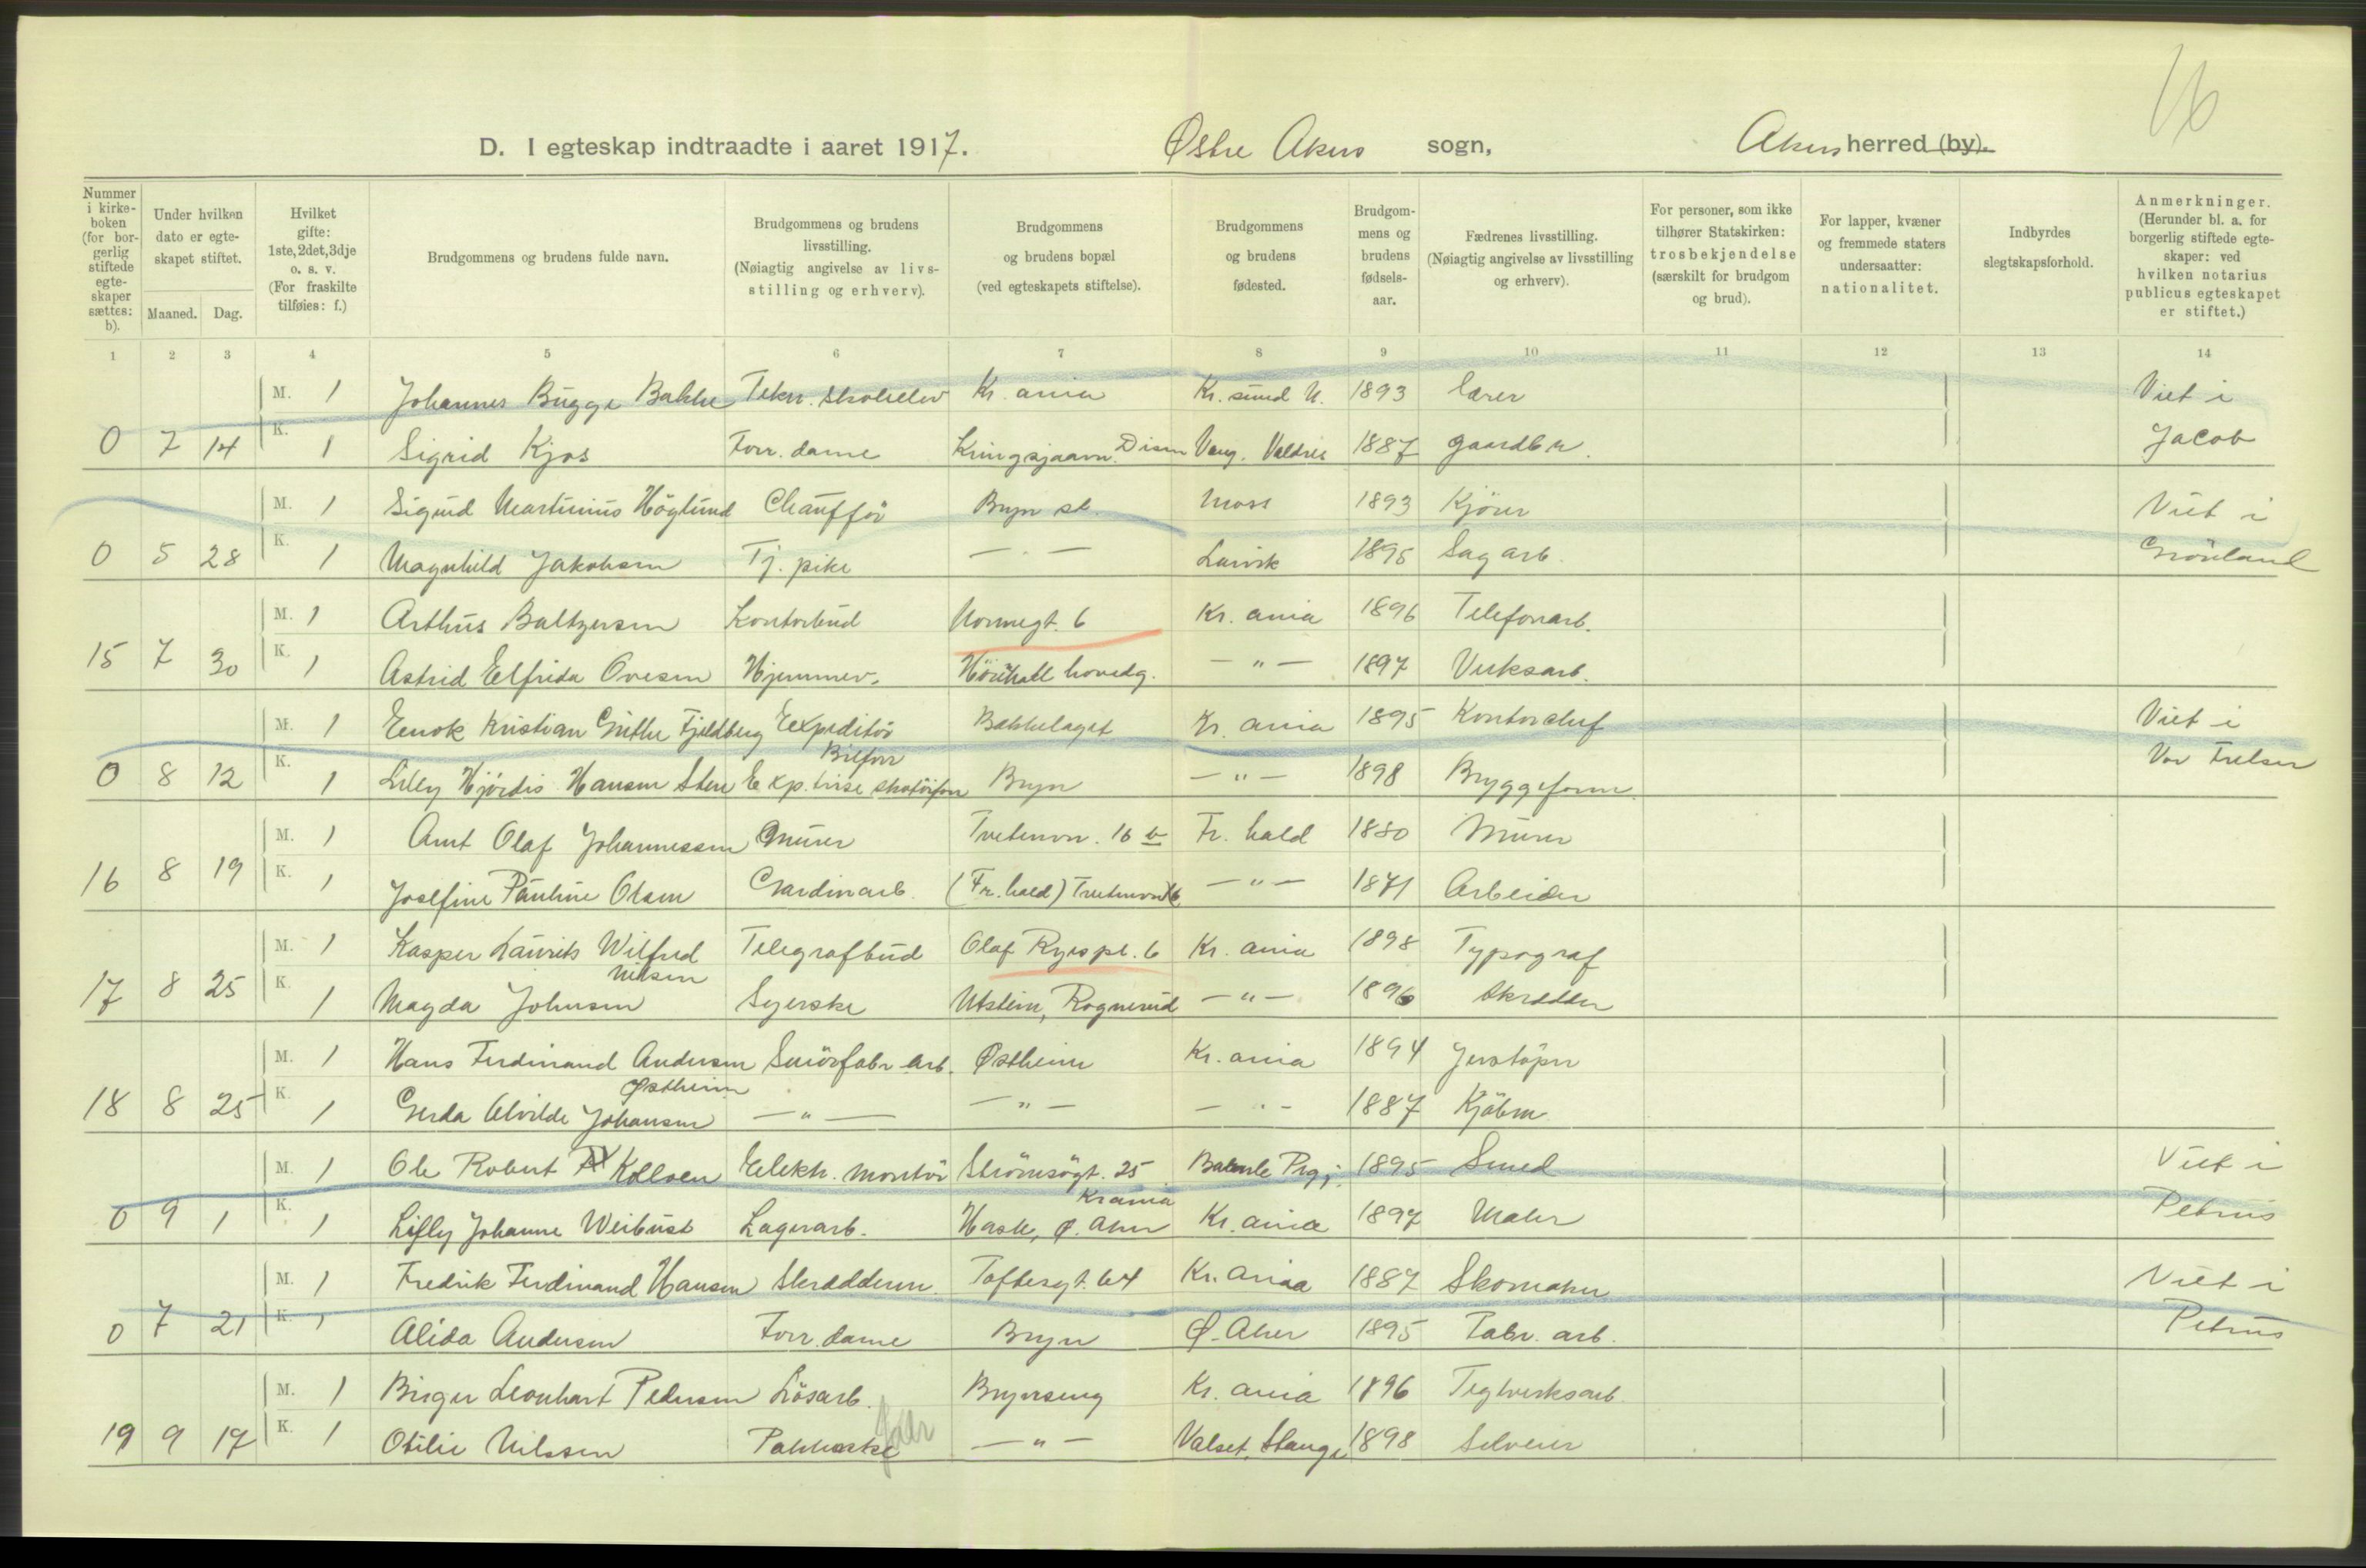 16
D. I egteskap indtraadte i aaret 1917. Østre Akers sogn, Akers herred (by).
Nummer i kirke-boken (for bor-gerlig stiftede egte-skaper sættes: b).
Under hvilken dato er egte-skapet stiftet.
Maaned. Dag.
Hvilket gifte: 1ste, 2det, 3dje o. s. v. (For fraskilte tilføies: f.)
Brudgommens og brudens fulde navn.
Brudgommens og brudens livsstilling. (Nøiagtig angivelse av livs-stilling og erhverv).
Brudgommens og brudens bopæl (ved egteskapets stiftelse).
Brudgommens og brudens fødested.
Brudgom-mens og brudens fødsels-aar.
Fædrenes livsstilling. (Nøiagtig angivelse av livsstilling og erhverv).
For personer, som ikke tilhører Statskirken: trosbekjendelse (særskilt for brudgom og brud).
For lapper, kvæner og fremmede staters undersaatter: nationalitet.
Indbyrdes slegtskapsforhold.
Anmerkninger. (Herunder bl. a. for borgerlig stiftede egte-skaper: ved hvilken notarius publicus egteskapet er stiftet.)
1 2 3 4 5 6 7 8 9 10 11 12 13 14
M. 1 Johannes Bugge Bakke Tekn. skoleelev Kr. ania Kr. sund N. 1893 Lærer Viet i
0 7 14 K. 1 Sigrid Kjos Forr. dame Kringsjaavn. Disen Vang. Valdres 1887 gaardbr. Jacob
M. 1 Sigurd Martinius Höglund Chaufför Bryn st. Moss 1893 Kjörer Viet i
0 5 28 K. 1 Magnhild Jakobsen Tj. pike — " — Larvik 1895 Sagarb. Grönland
M. 1 Arthur Baltzersen Kontorbud Normegt. 6 Kr. ania 1896 Telefonarb.
15 7 30 K. 1 Astrid Elfrida Ovesen Hjemmev. hovedg. — " — 1897 Verksarb.
M. 1 Enok Kristian Grithe Fjeldberg Expeditör Bækkelaget Kr. ania 1895 Kontorchef Viet i
0 8 12 K. 1 Lilly Hjördis Hansen Stere Exp. trise Bryn — " — 1898 Bryggeform. Vor Frelser
M. 1 Arnt Olaf Johannessen Murer Tvetenvn. 16 b Fr. hald 1880 Murer
16 8 19 K. 1 Josefine Pauline Olsen Gardinarb. (Fr. hald) Tvetenvn 16 — " — 1871 Arbeider
M. 1 Kasper Laurits Wilfred Nilsen Telegrafbud Olaf Ryes pl. 6 Kr. ania 1898 Typograf
17 8 25 K. 1 Magda Johnsen Syerske Utstein, Rognerud — " — 1896 Skrædder
M. 1 Hans Ferdinand Andersen Smörfabr. arb. Østheim Kr. ania 1894 Jernstöper
18 8 25 K. 1 Gerda Alvilde Johansen Østheim — " — — " — — " — 1887 Kjöbm.
M. 1 Ole Robert Kollven Elektr. montör Strömsögt. 25 Kr ania Bamle Prgj. 1895 Smed Viet i
0 9 1 K. 1 Lilly Johanne Weibust Lagerarb. Hasle, Ø. Aker Kr. ania 1897 Maler Petrus
M. 1 Fredrik Ferdinand Hansen Skræddersv. Toftesgt. 64 Kr. ania 1887 Skomaker Viet i
0 7 21 K. 1 Alida Andersen Forr. dame Bryn Ø. Aker 1895 Fabr. arb. Petrus
M. 1 Birger Leonhart Pedersen Lösarb. Brynseng Kr. ania 1896 Teglverksarb.
19 9 17 K. 1 Otilie Nilssen Pakkerske — " — Valset, Stange 1898 Selveier